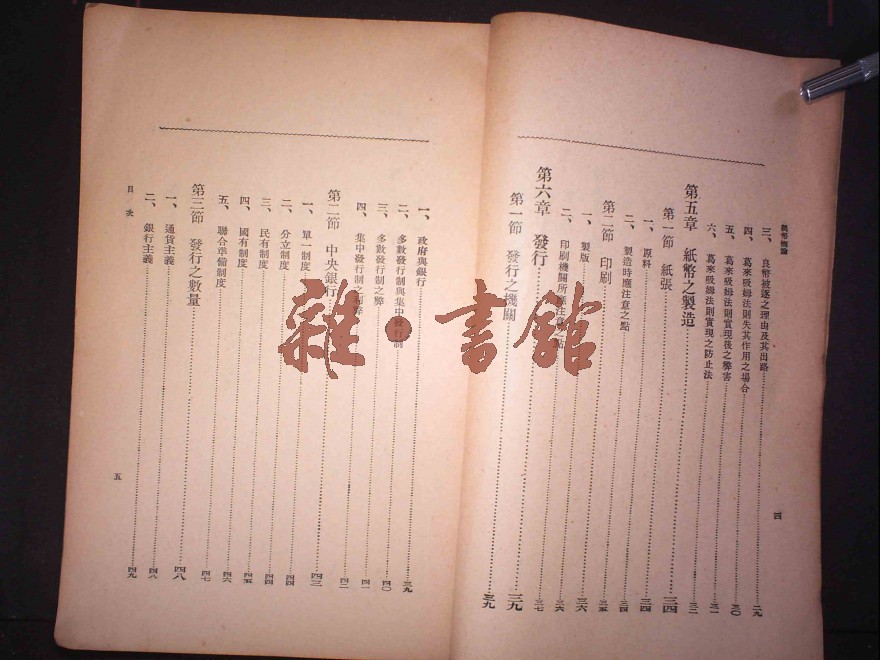 貨幣概論
三、良幣被逐之理由及其出路……二九
四、葛來吸姆法則失其作用之場合……三〇
五、葛來吸姆法則實現後之弊害……三一
六、葛來吸姆法則實現之防止法……三二
第五章 紙幣之製造……三四
第一節 紙張……三四
一、原料……三四
二、製造時應注意之點……三五
第二節 印刷……三六
一、製版……三六
二、印刷機關所應注意之點……三七
第六章 發行……三九
第一節 發行之機關……三九
四
一、政府與銀行……三九
二、多數發行制與集中發行制……四〇
三、多數發行制之弊……四一
四、集中發行制之利弊……四二
第二節 中央銀行……四三
一、單一制度……四四
二、分立制度……四四
三、民有制度……四五
四、國有制度……四六
五、聯合準備制度……四七
第三節 發行之數量……四八
一、通貨主義……四八
二、銀行主義……四九
目次
五
雜·書館